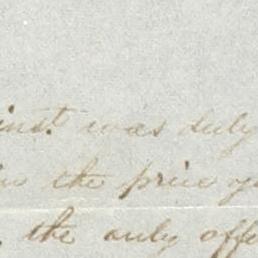 inst. was duly
the price
the only offe